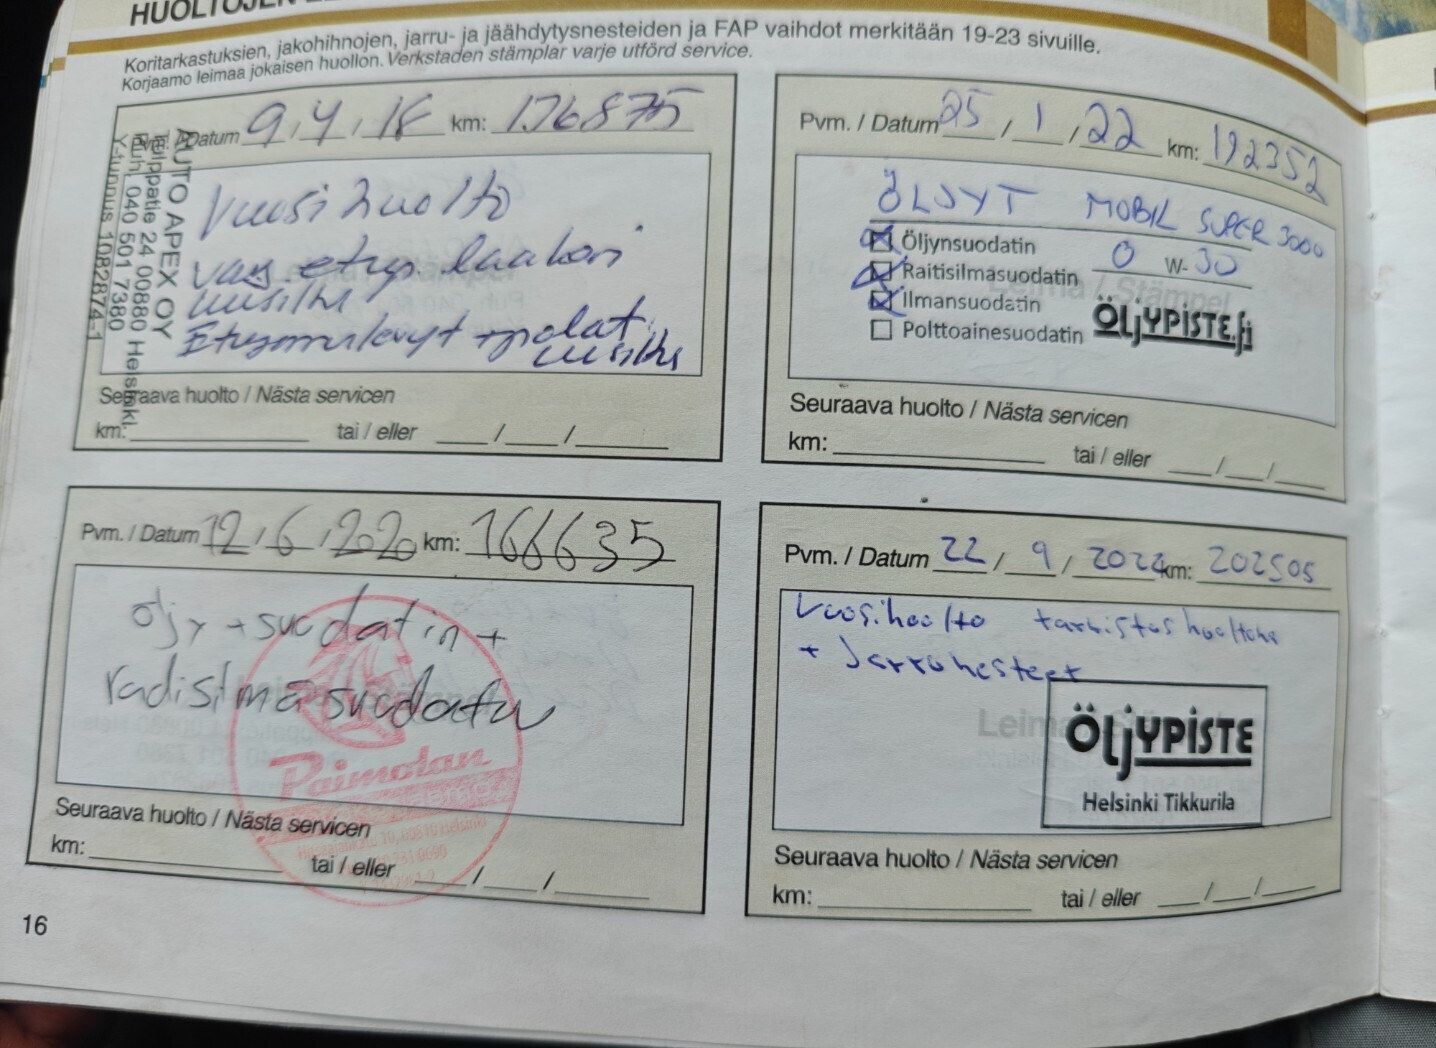 Koritarkastuksien, jakohihnojen, jarru- ja jäähdytysnesteiden ja FAP vaihdot merkitään 19-23 sivuille.
Korjaamo leimaa jokaisen huollon. Verkstaden stämplar varje utförd service.
Datum 9, 4, 18 km: 176875
AUTO APEX OY
Tulppatie 24 00880 Helsinki
Puh. 040 501 7380
Y-tunnus 1082874-1
Vuosihuolto
vas etup laakeri
uusittu
Etujarrulevyt + palat
uusittu
Seuraava huolto / Nästa servicen
km: tai / eller / /
Pvm. / Datum 12 / 6 / 2020 km: 166635
öljy + suodatin +
radisilmäsuodatin
Paimolan
Seuraava huolto / Nästa servicen
km: tai / eller / /
16
Pvm. / Datum 25 / 1 / 22 km: 192352
ÖLJYT MOBIL SUPER 3000
Öljynsuodatin 0 W- 30
Raitisilmasuodatin
Ilmansuodatin
Polttoainesuodatin
ÖLJYPISTE.fi
Seuraava huolto / Nästa servicen
km: tai / eller / /
Pvm. / Datum 22 / 9 / 2022 km: 202505
Vuosihuolto tarkistus huoltona
+ Jarrunesteet
ÖLJYPISTE
Helsinki Tikkurila
Seuraava huolto / Nästa servicen
km: tai / eller / /